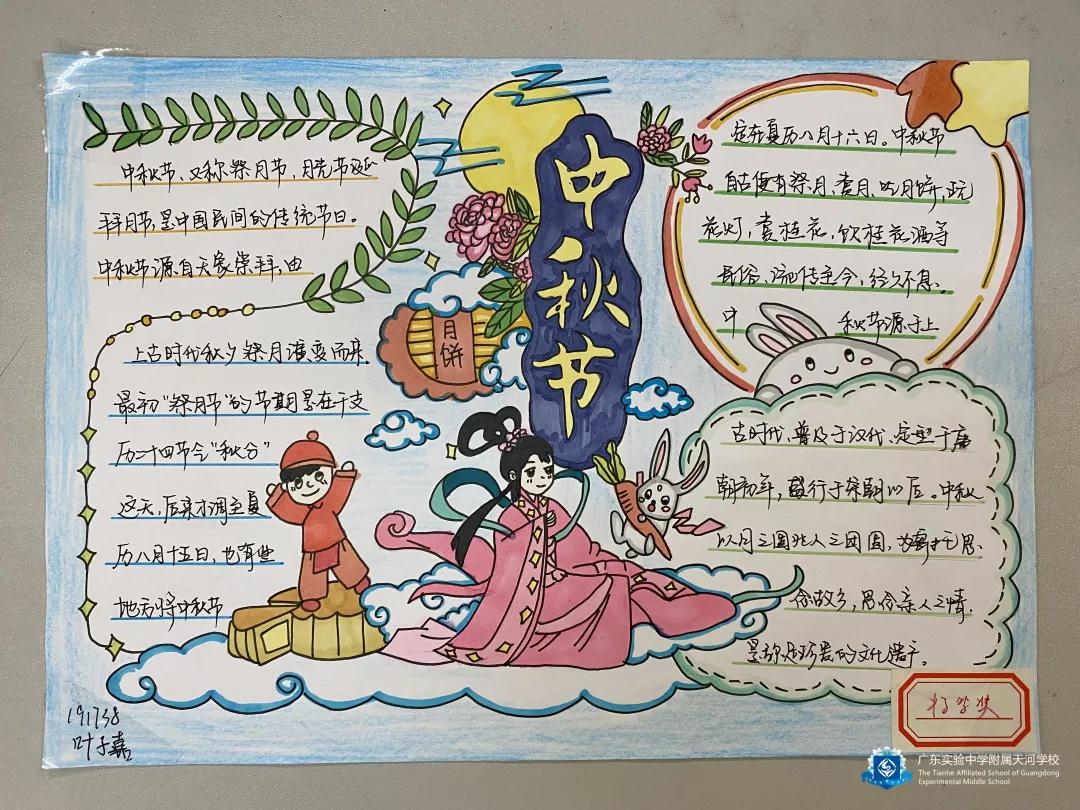 中秋节
月饼
中秋节,又称祭月节,月光诞
拜月节,是中国民间的传统节日。
中秋节源自天象崇拜,由
上古时代秋夕祭月演变而来.
最初“祭月节”的节期是在干支
历二十四节令“秋分”
这天,后来才调至夏
历八月十五日,也有些
地方将中秋节
定在夏历八月十六日。中秋节
自古便有祭月、赏月、吃月饼,玩
花灯,赏桂花,饮桂花酒等
民俗、流传至今,经久不息.
中 秋节源于上
古时代,普及于汉代,定型于唐
朝初年,盛行于宋朝以后。中秋
以月之圆兆人之团圆,为寄托思
念故乡,思念亲人之情,
的文化遗产。
191738
叶子嘉
广东实验中学附属天河学校
The Tianhe Affiliated School of Guangdong
Experimental Middle School